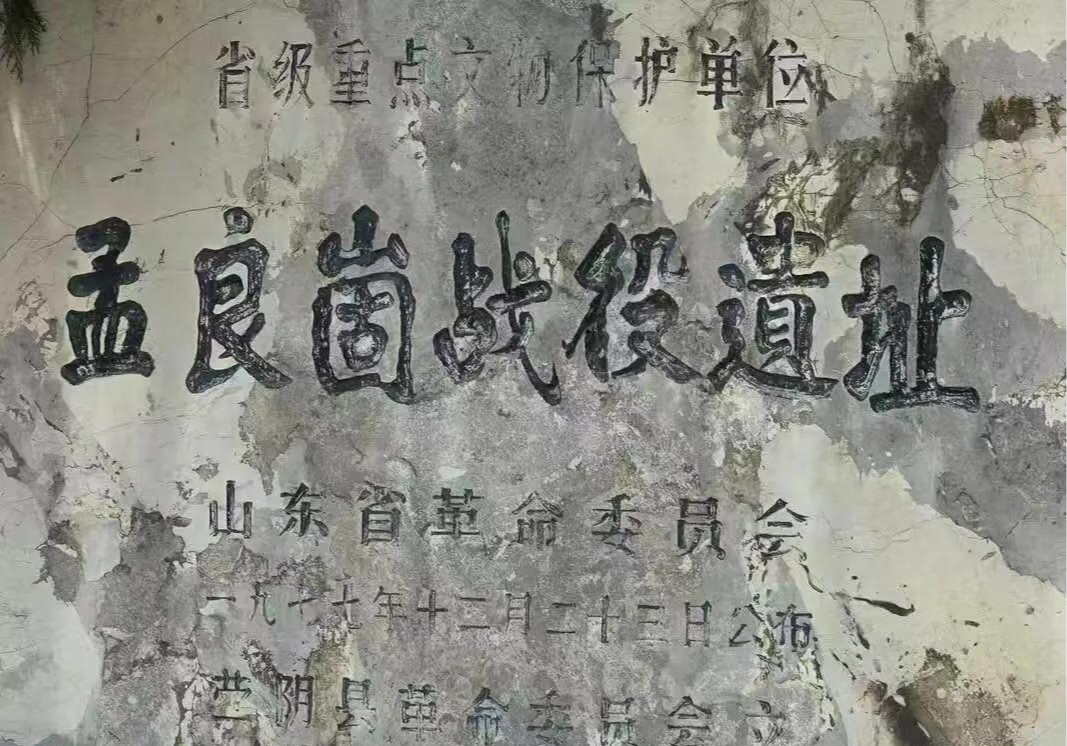 省级重点文物保护单位
孟良崮战役遗址
山东省革命委员会
一九七七年十二月二十三日公布
蒙阴县革命委员会立